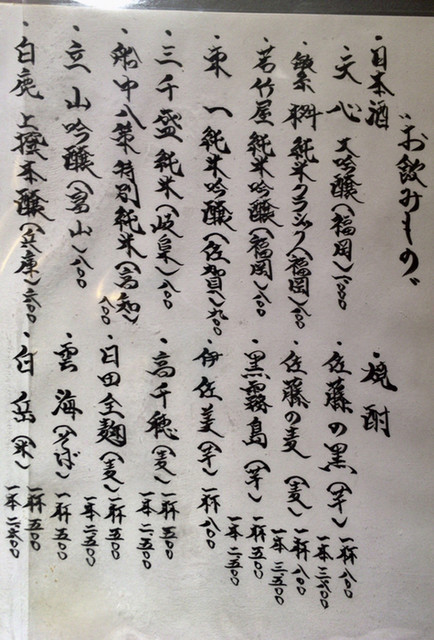 "お飲みもの"
・日本酒
・天心 大吟醸（福岡）一〇〇〇
・繁桝 純米クラシック（福岡）八〇〇
・若竹屋 純米吟醸（福岡）八〇〇
・東一 純米吟醸（佐賀）九〇〇
・三千盛 純米（岐阜）八〇〇
・船中八策 特別純米（高知）八〇〇
・立山 吟醸（富山）八〇〇
・白鹿 上撰本醸（兵庫）六〇〇
・焼酎
・佐藤の黒（芋）一杯 八〇〇
一本
・佐藤の麦（麦）一杯 八〇〇
一本 三五〇〇
・黒霧島（芋）一杯 五〇〇
一本 二五〇〇
・伊佐美（芋）一杯 八〇〇
・高千穂（麦）一杯 五〇〇
一本 二五〇〇
・日田全麹（麦）一杯 五〇〇
一本 二五〇〇
・雲海（そば）一杯 五〇〇
・白岳（米）一杯 五〇〇
一本 二五〇〇